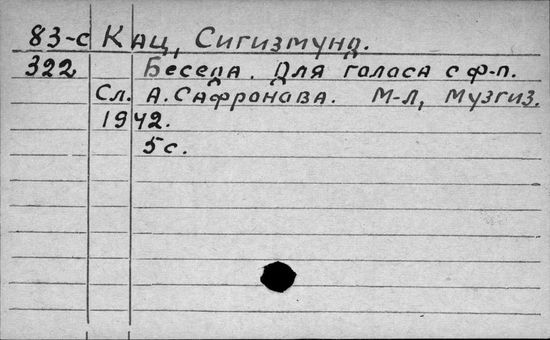 83-с Кац, Сигизмунд.
322 Беседа. Для голоса с ф-п.
Сл. А. Сафронова. М-Л, Музгиз.
1942.
5 с.